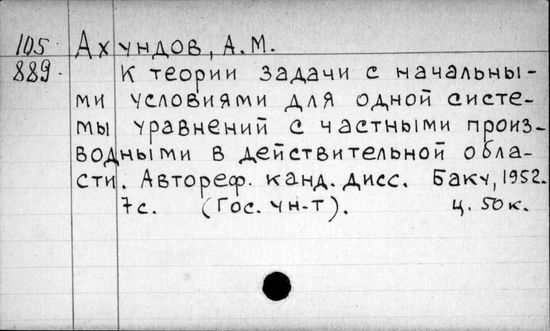 105 Ахундов, А.М.
889. К теории задачи с начальны-
ми условиями для одной систе-
мы уравнений с частными произ-
водными в действительной обла-
сти. Автореф. канд. дисс. Баку, 1952.
7с. (Гос. ун-т). ц. 50к.